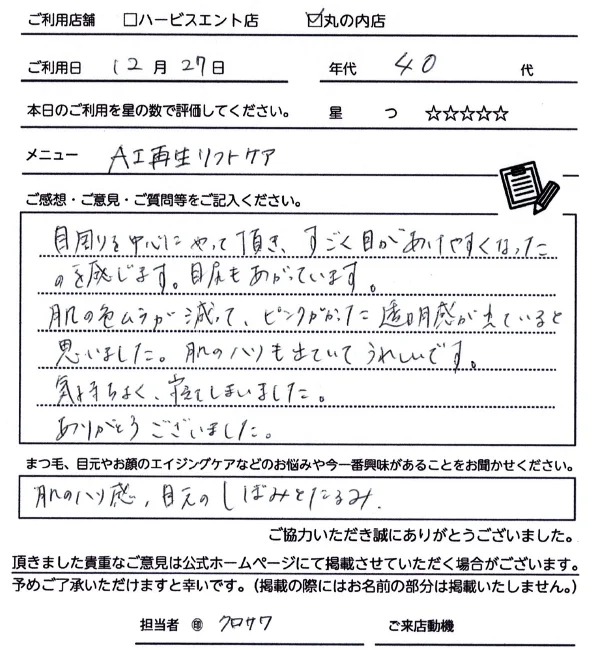 ご利用店舗 □ハービスエント店 ☑丸の内店
ご利用日 12月27日 年代 40 代
本日のご利用を星の数で評価してください。 星 つ ☆☆☆☆☆
メニュー AI再生リフトケア
ご感想・ご意見・ご質問等をご記入ください。
目周りを中心にやって頂き、すごく目があけやすくなった
のを感じます。目尻もあがっています。
肌の色ムラが減って、ピンクがかった透明感が出ていると
思いました。肌のハリも出ていてうれしいです。
気持ちよく、寝てしまいました。
ありがとうございました。
まつ毛、目元やお顔のエイジングケアなどのお悩みや今一番興味があることをお聞かせください。
肌のハリ感，目元のしぼみとたるみ.
ご協力いただき誠にありがとうございました。
頂きました貴重なご意見は公式ホームページにて掲載させていただく場合がございます。
予めご了承いただけますと幸いです。（掲載の際にはお名前の部分は掲載いたしません。）
担当者 ㊞ クロサワ ご来店動機